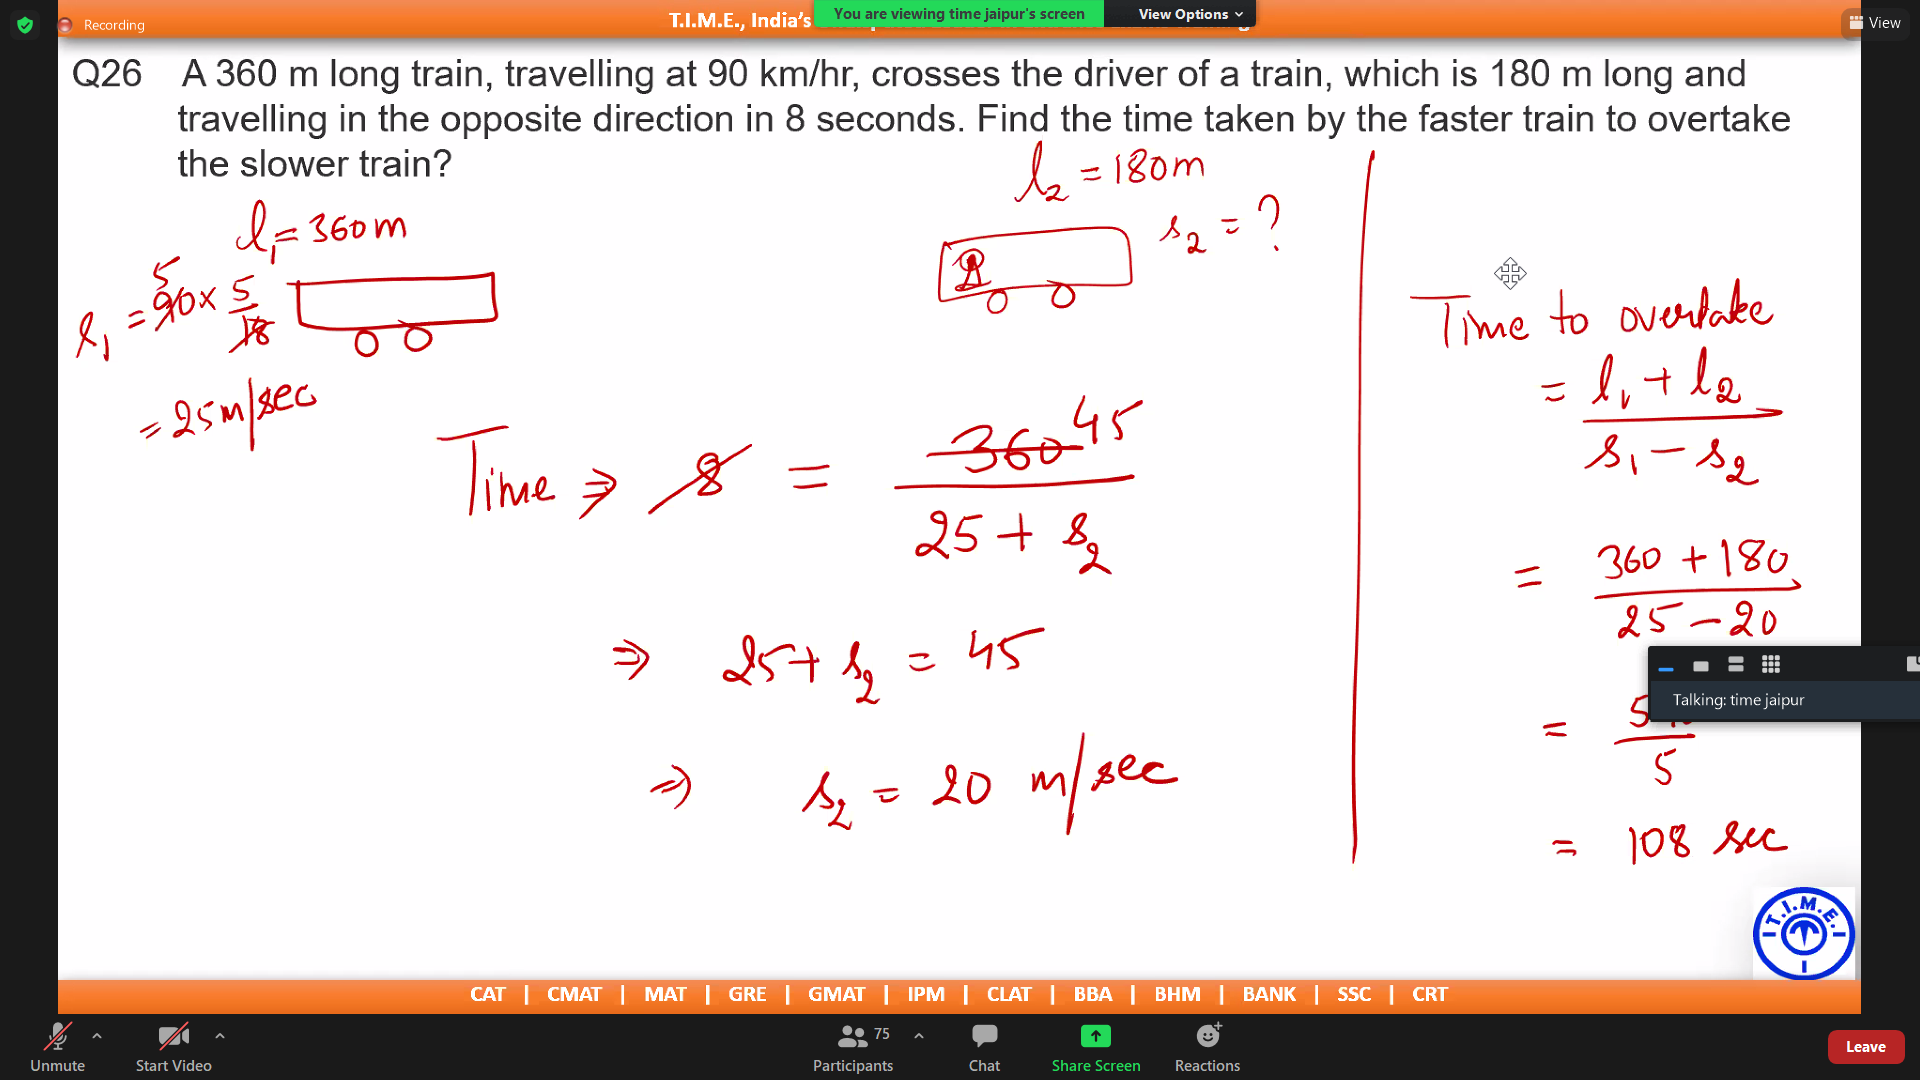 Recording
T.I.M.E., India's
You are viewing time jaipur's screen
View Options
View
Q26 A 360 m long train, travelling at 90 km/hr, crosses the driver of a train, which is 180 m long and
travelling in the opposite direction in 8 seconds. Find the time taken by the faster train to overtake
the slower train?
l₁ = 360m
s₁ = 90 × 5/18
5
= 25 m/sec
l₂ = 180m
s₂ = ?
Time ⇒ 8 = 360 45
25 + s₂
⇒ 25 + s₂ = 45
⇒ s₂ = 20 m/sec
Time to overtake
= l₁ + l₂
s₁ - s₂
= 360 + 180
25 - 20
=
5
= 108 sec
Talking: time jaipur
T.I.M.E.
CAT | CMAT | MAT | GRE | GMAT | IPM | CLAT | BBA | BHM | BANK | SSC | CRT
Unmute
Start Video
75
Participants
Chat
Share Screen
Reactions
Leave